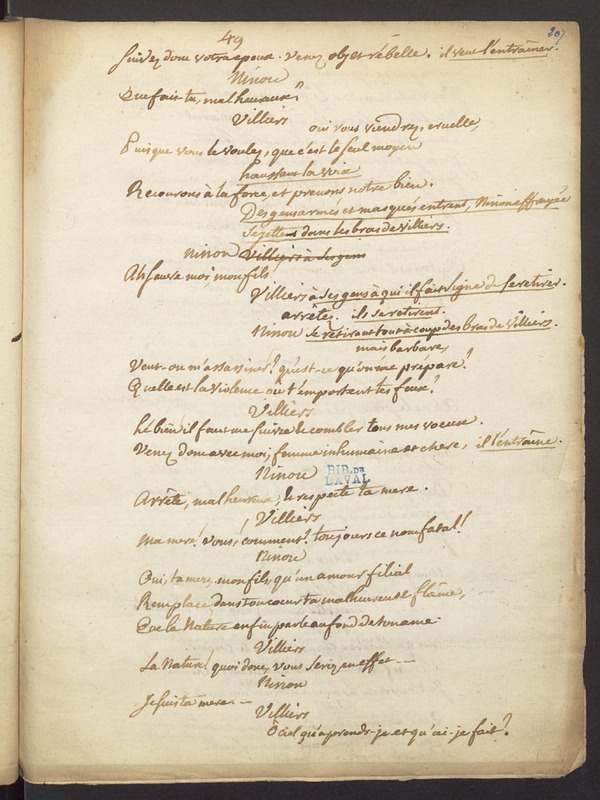 49
307
Suivez donc votre epoux. Venez objet rébelle. il veut l'entraîner.
Ninon
Que fais-tu, malheureux?
Villiers
oui vous viendrez, cruelle,
Puisque vous le voulez, que c'est le seul moyen
haussant la voix
Recourons à la force, et prenons notre bien.
Des gens armés et masqués entrent, Ninon effrayée
se jettent dans les bras de Villiers.
Ninon Villiers à ses gens
Ah sauve moi, mon fils
Villiers à ses gens à qui il fait signe de se retirer.
arrêtez. ils se retirent.
Ninon se retirant tout à coup des bras de Villiers.
mais barbare,
Veut-on m'assassiner? qu'est-ce qu'on me prépare?
Quelle est la violence où t'emportent tes feux?
Villiers
hé bien il faut me suivre & combler tous mes voeux.
Venez donc avec moi, femme inhumaine et chere, il l'entraîne.
Ninon
BIB. DE
LAVAL
Arrête, malheureux, & respecte ta mere.
Villiers
Ma mere! vous! comment! toujours ce nom fatal!
Ninon
Oui, ta mere, mon fils, qu'un amour filial
Remplace dans ton coeur ta malheureuse flâme,
Que la Nature enfin parle au fond de ton ame.
Villiers
La Nature! quoi donc, vous seriez en effet -–
Ninon
Je suis ta mere. -–
Villiers
ô ciel qu'aprends-je et qu'ai-je fait?